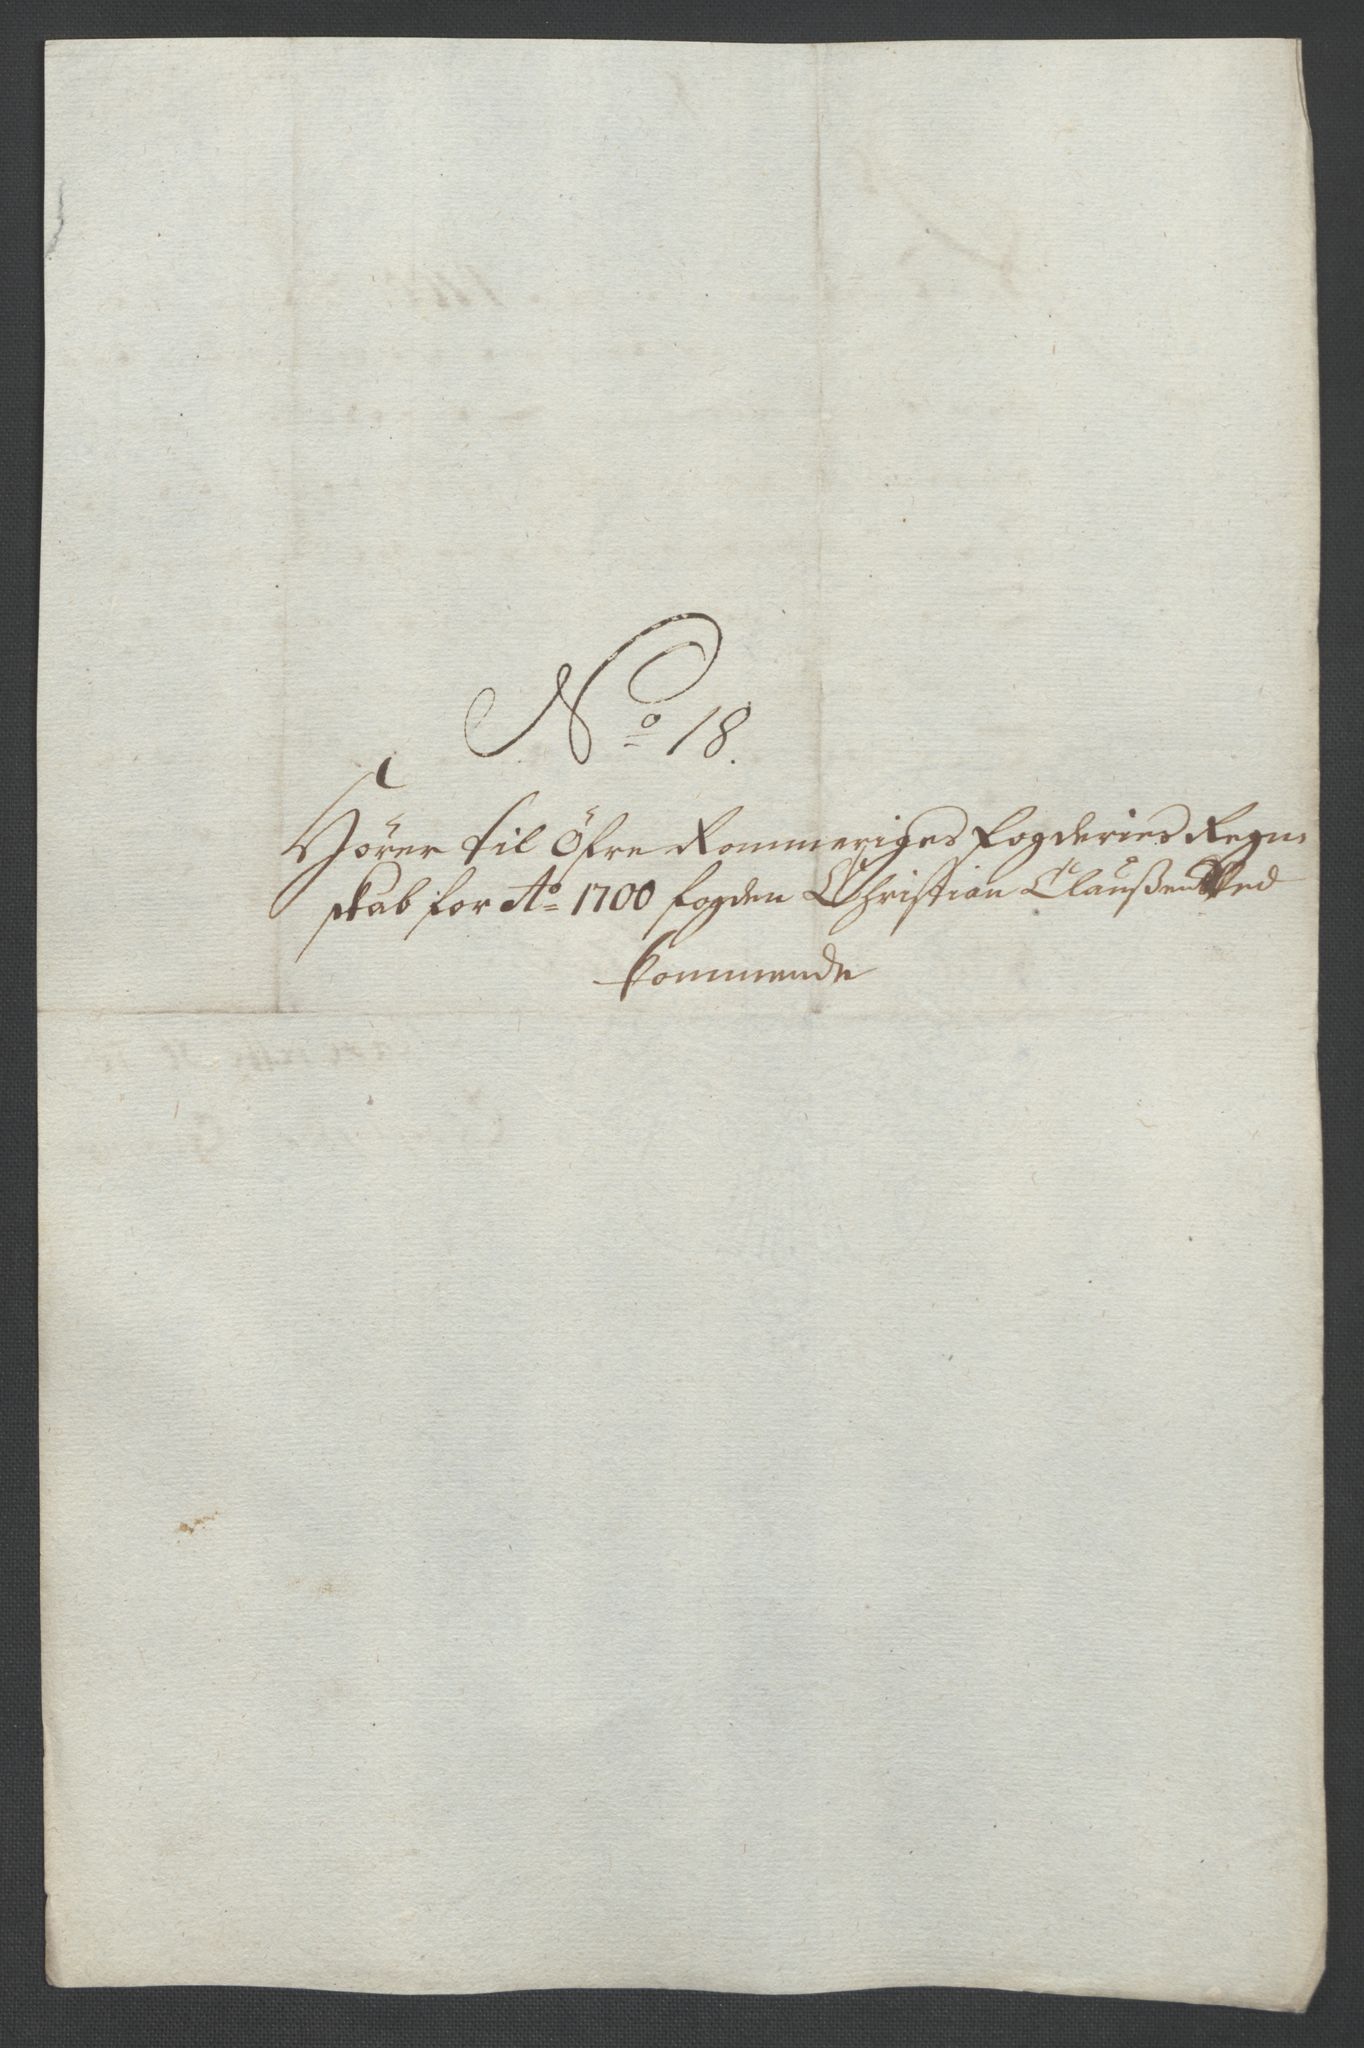 No 18.
Hörer til Öfre Rommeriges fogderies Regn-
skab for Ao 1700 fogden Christian Claußen Ved
kommende